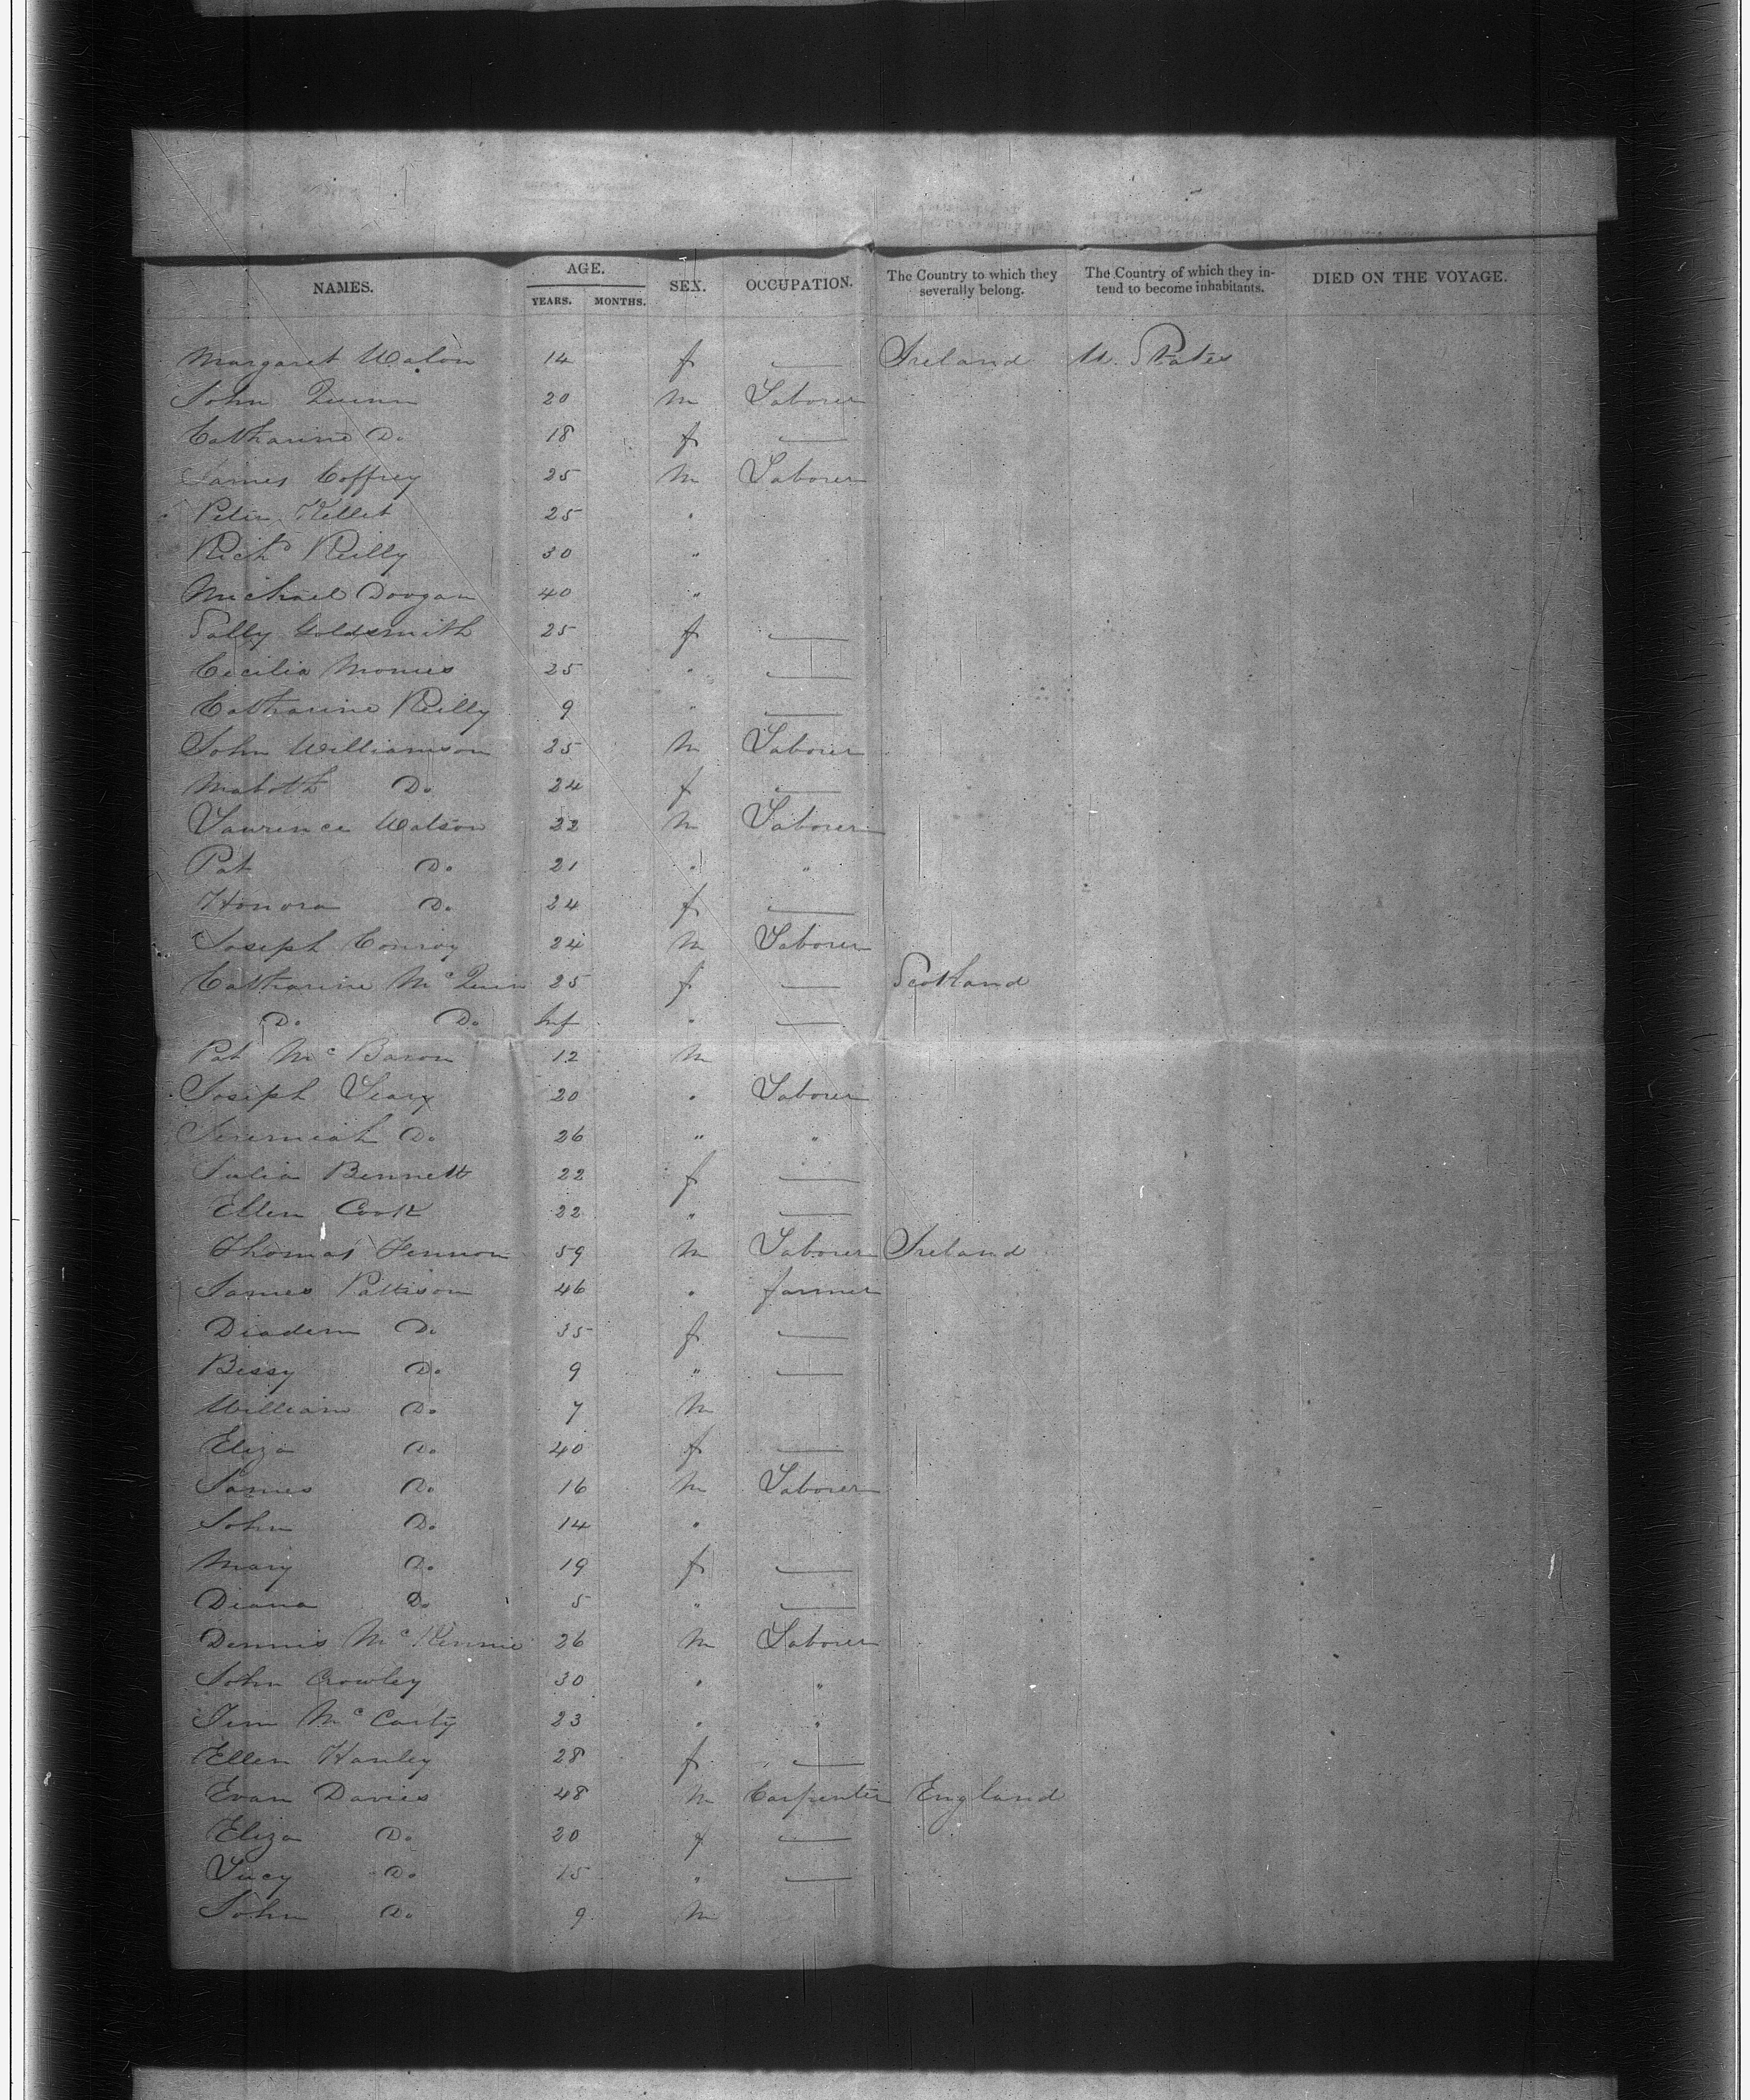 NAMES. AGE. YEARS. MONTHS. SEX. OCCUPATION. The Country to which they severally belong. The Country of which they intend to become inhabitants. DIED ON THE VOYAGE.
Margaret 14 f — Ireland U. States
John Quinn 20 M Laborer
Catharine Do 18 f —
James Coffrey 25 M Laborer
Peter Kellet 25 "
Richd Reilly 30 "
Michael Doogan 40 "
Sally Goldsmith 25 f —
Cecilia 25 " —
Catharine Reilly 9 " —
John Williamson 25 M Laborer
Do 24 f —
Laurence Watson 22 M Laborer
Pat Do 21 " "
Honora Do 24 f —
Joseph Conroy 24 M Laborer
Catharine McQuin 25 f — Scotland
Do Do Inf " —
Pat McBaron 12 M
Joseph Leary 20 " Laborer
Jeremiah Do 26 " "
Julia Bennett 22 f —
Ellen Cook 22 " —
Thomas Fennon 59 M Laborer Ireland
James Pattison 46 " farmer
Diadem Do 35 f —
Bessy Do 9 " —
William Do 7 M
Eliza Do 40 f —
James Do 16 M Laborer
John Do 14 "
Mary Do 19 f —
Diana Do 5 " —
Dennis McKennie 26 M Laborer
John Crowley 30 " "
Jim McCarty 23 " "
Ellen Hanley 28 f —
Evan Davies 48 M Carpenter England
Eliza Do 20 f —
Lucy Do 15 " —
John Do 9 M